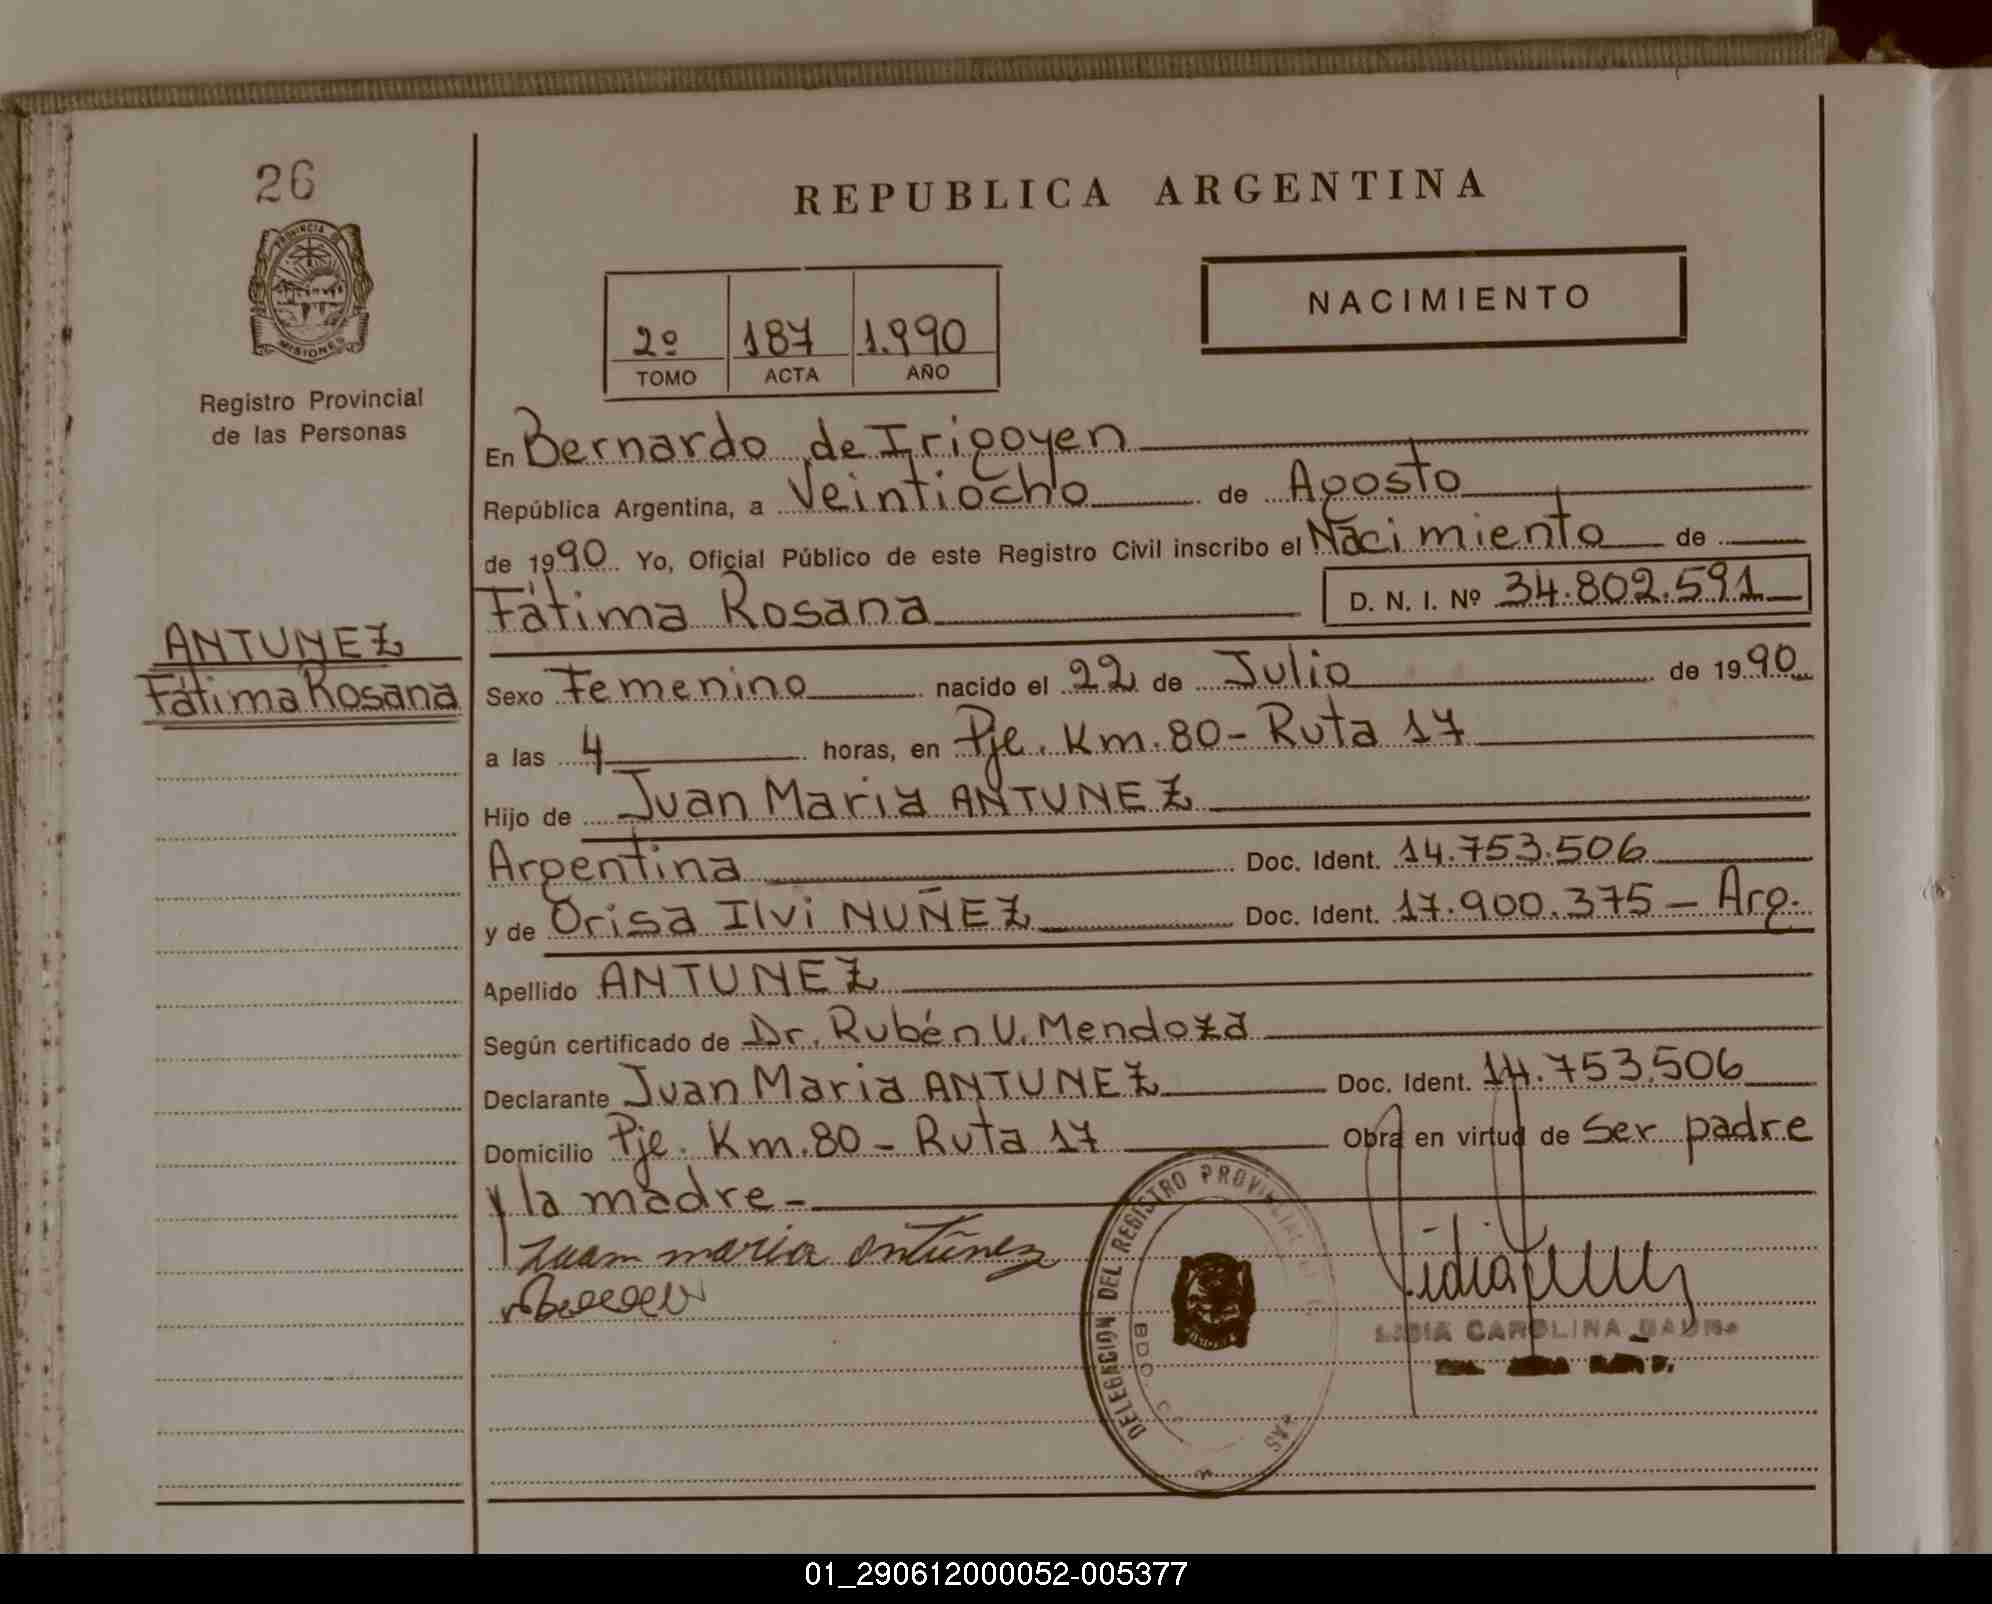 26
PROVINCIA DE
MISIONES
Registro Provincial
de las Personas
ANTUNEZ
Fátima Rosana
REPUBLICA ARGENTINA
NACIMIENTO
2º 187 1.990
TOMO ACTA AÑO
En Bernardo de Irigoyen
República Argentina, a Veintiocho de Agosto
de 1990 Yo, Oficial Público de este Registro Civil inscribo el Nacimiento de
Fátima Rosana D. N. I. Nº 34.802.591
Sexo Femenino nacido el 22 de Julio de 1990
a las 4 horas, en Pje. Km. 80 - Ruta 17
Hijo de Juan Maria ANTUNEZ
Argentina Doc. Ident. 14.753.506
y de Orisa Ilvi NUÑEZ Doc. Ident. 17.900.375 - Arg.
Apellido ANTUNEZ
Según certificado de Dr. Rubén V. Mendoza
Declarante Juan Maria ANTUNEZ Doc. Ident. 14.753.506
Domicilio Pje. Km. 80 - Ruta 17 Obra en virtud de Ser padre
y la madre -
Juan maria antúnez
DELEGACION DEL REGISTRO PROVINCIAL
BDO.
LIDIA CAROLINA
01_290612000052-005377